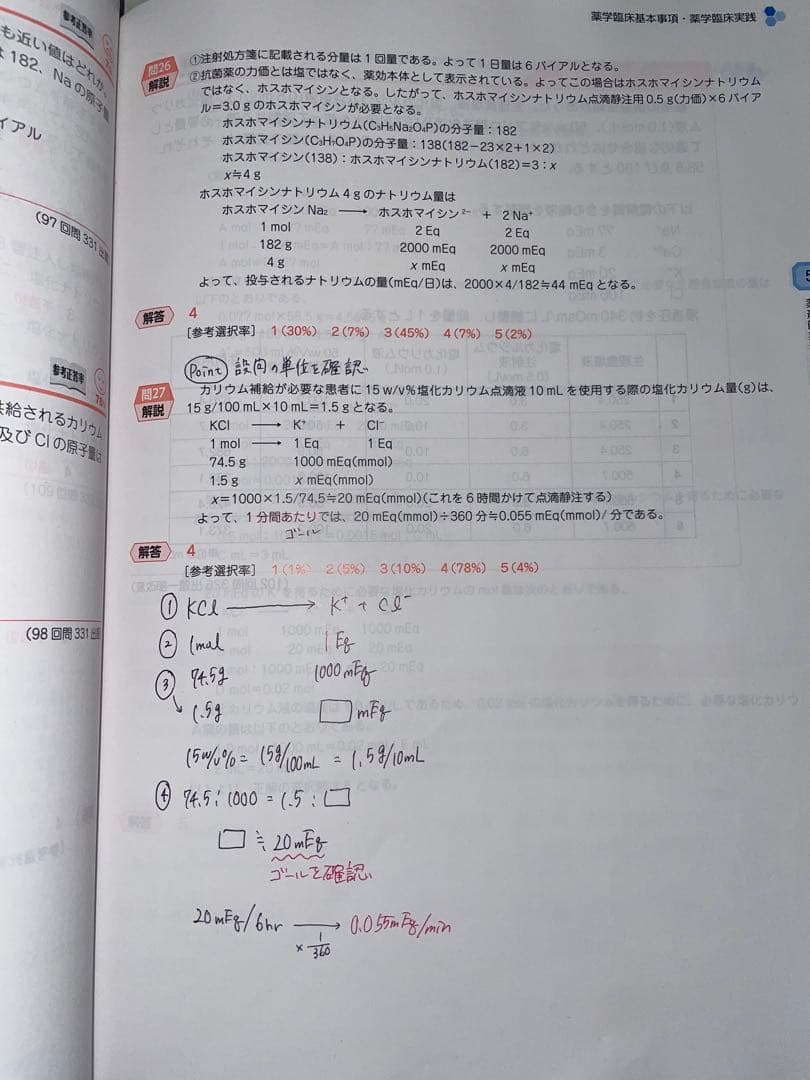 薬学臨床基本事項・薬学臨床実践
参考正答率
も近い値はどれか。
は 182、Na の原子量
イアル
(97 回問 331 出題
参考正答率
供給されるカリウム
及び Cl の原子量は
(98 回問 331 出題
問26
解説
①注射処方箋に記載される分量は1回量である。よって1日量は6バイアルとなる。
②抗菌薬の力価とは塩ではなく、薬効本体として表示されている。よってこの場合はホスホマイシンナトリウム
ではなく、ホスホマイシンとなる。したがって、ホスホマイシンナトリウム点滴静注用 0.5 g(力価)×6 バイア
ル=3.0 g のホスホマイシンが必要となる。
ホスホマイシンナトリウム(C₃H₅Na₂O₄P)の分子量:182
ホスホマイシン(C₃H₇O₄P)の分子量:138(182−23×2+1×2)
ホスホマイシン(138):ホスホマイシンナトリウム(182)=3:x
x≒4 g
ホスホマイシンナトリウム 4 g のナトリウム量は
ホスホマイシン Na₂ ⟶ ホスホマイシン²⁻ + 2 Na⁺
1 mol 2 Eq 2 Eq
182 g 2000 mEq 2000 mEq
4 g x mEq x mEq
よって、投与されるナトリウムの量(mEq/日)は、2000×4/182≒44 mEq となる。
解答 4
[参考選択率] 1(30%) 2(7%) 3(45%) 4(7%) 5(2%)
Point 設問の単位を確認
問27
解説
カリウム補給が必要な患者に 15 w/v%塩化カリウム点滴液 10 mL を使用する際の塩化カリウム量(g)は、
15 g/100 mL×10 mL=1.5 g となる。
KCl ⟶ K⁺ + Cl⁻
1 mol → 1 Eq 1 Eq
74.5 g 1000 mEq(mmol)
1.5 g x mEq(mmol)
x=1000×1.5/74.5≒20 mEq(mmol)(これを 6 時間かけて点滴静注する)
よって、1 分間あたりでは、20 mEq(mmol)÷360 分≒0.055 mEq(mmol)/分である。
ゴール
解答 4
[参考選択率] 1(1%) 2(5%) 3(10%) 4(78%) 5(4%)
① KCl ⟶ K⁺ + Cl⁻
② 1mol 1Eq
③ 74.5g 1000mEq
1.5g □mEq
15w/v% = 15g/100mL = 1.5g/10mL
④ 74.5:1000 = 1.5:□
□≒20mEq
ゴールを確認
20mEq/6hr ⟶ 0.055mEq/min
×1/360